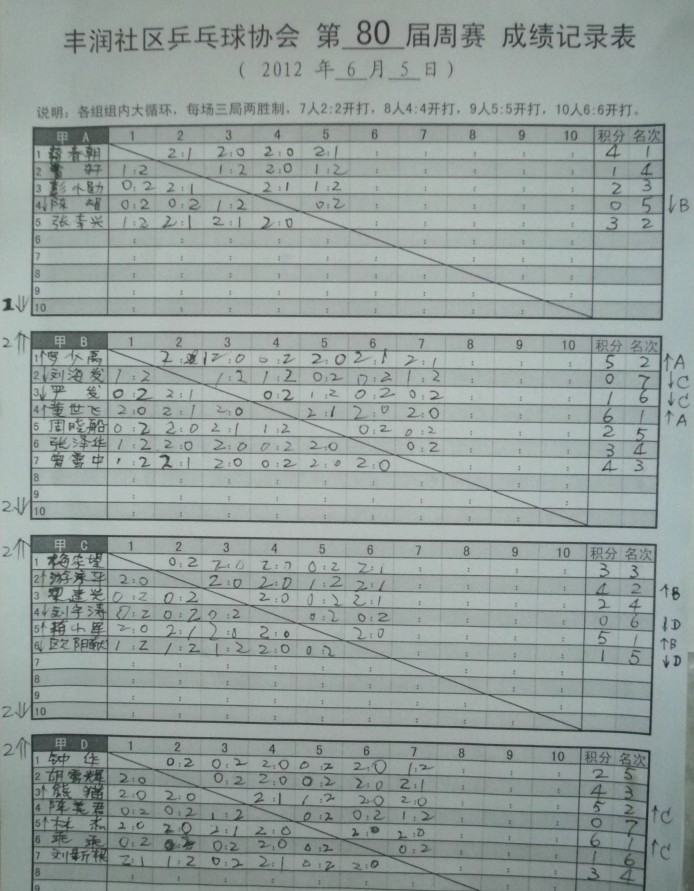 丰润社区乒乓球协会 第 80 届周赛 成绩记录表
( 2012 年 6 月 5 日 )
说明：各组组内大循环，每场三局两胜制，7人2:2开打，8人4:4开打，9人5:5开打，10人6:6开打。
甲 A 1 2 3 4 5 6 7 8 9 10 积分 名次
1 春朝 2:1 2:0 2:0 2:1 : : : : : 4 1
2 好 1:2 1:2 2:0 1:2 : : : : : 1 4
3 彭小勋 0:2 2:1 2:1 1:2 : : : : : 2 3
4 陈 0:2 0:2 1:2 0:2 : : : : : 0 5 ↓B
5 张李兴 1:2 2:1 2:1 2:0 : : : : : 3 2
6 : : : : : : : : :
7 : : : : : : : : :
8 : : : : : : : : :
9 : : : : : : : : :
1↓ 10 : : : : : : : : :
2↑ 甲 B 1 2 3 4 5 6 7 8 9 10 积分 名次
1↑ 罗少高 2:1 2:0 0:2 2:0 2:1 2:1 : : : 5 2 ↑A
2↓ 刘海发 1:2 1:2 1:2 0:2 0:2 1:2 : : : 0 7 ↓C
3↓ 严 发 0:2 2:1 0:2 1:2 0:2 0:2 : : : 1 6 ↓C
4↑ 董世飞 2:0 2:1 2:0 2:1 2:0 2:0 : : : 6 1 ↑A
5 周晓船 0:2 2:0 2:1 1:2 0:2 0:2 : : : 2 5
6 张泽华 1:2 2:0 2:0 0:2 2:0 0:2 : : : 3 4
7 曾雪中 1:2 2:1 2:0 0:2 2:0 2:0 : : : 4 3
8 : : : : : : : : :
9 : : : : : : : : :
2↓ 10 : : : : : : : : :
2↑ 甲 C 1 2 3 4 5 6 7 8 9 10 积分 名次
1 0:2 2:0 2:0 0:2 2:1 : : : : 3 3
2↑ 游泽平 2:0 2:0 2:0 1:2 2:1 : : : : 4 2 ↑B
3 梁建光 0:2 0:2 2:0 0:2 2:1 : : : : 2 4
4↓ 刘宇涛 0:2 0:2 0:2 0:2 0:2 : : : : 0 6 ↓D
5↑ 小军 2:0 2:1 2:0 2:0 2:0 : : : : 5 1 ↑B
6↓ 欧阳献 1:2 1:2 1:2 2:0 0:2 : : : : 1 5 ↓D
7 : : : : : : : : :
8 : : : : : : : : :
9 : : : : : : : : :
2↓ 10 : : : : : : : : :
2↑ 甲 D 1 2 3 4 5 6 7 8 9 10 积分 名次
1 钟 华 0:2 0:2 2:0 0:2 2:0 1:2 : : : 2 5
2 胡雪辉 2:0 0:2 2:0 0:2 2:0 2:1 : : : 4 3
3↑ 熊 猫 2:0 2:0 2:1 1:2 2:0 2:0 : : : 5 2 ↑C
4 陈美君 0:2 0:2 1:2 0:2 0:2 1:2 : : : 0 7
5↑ 林 杰 2:0 2:0 2:1 2:0 2:0 2:0 : : : 6 1 ↑C
6 乖 乖 0:2 0:2 0:2 2:0 0:2 0:2 : : : 1 6
7 刘新根 2:1 1:2 0:2 2:1 0:2 2:0 : : : 3 4
8 : : : : : : : : :